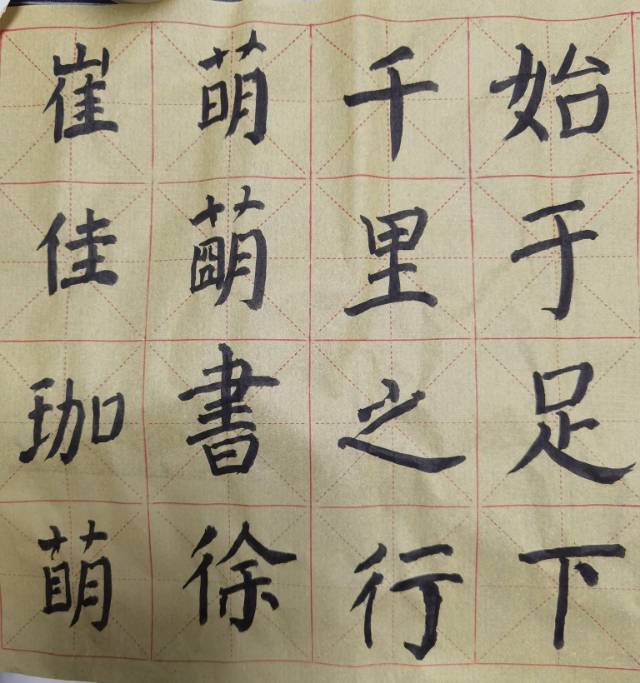 崔佳珈萌
萌萌書徐
千里之行
始于足下